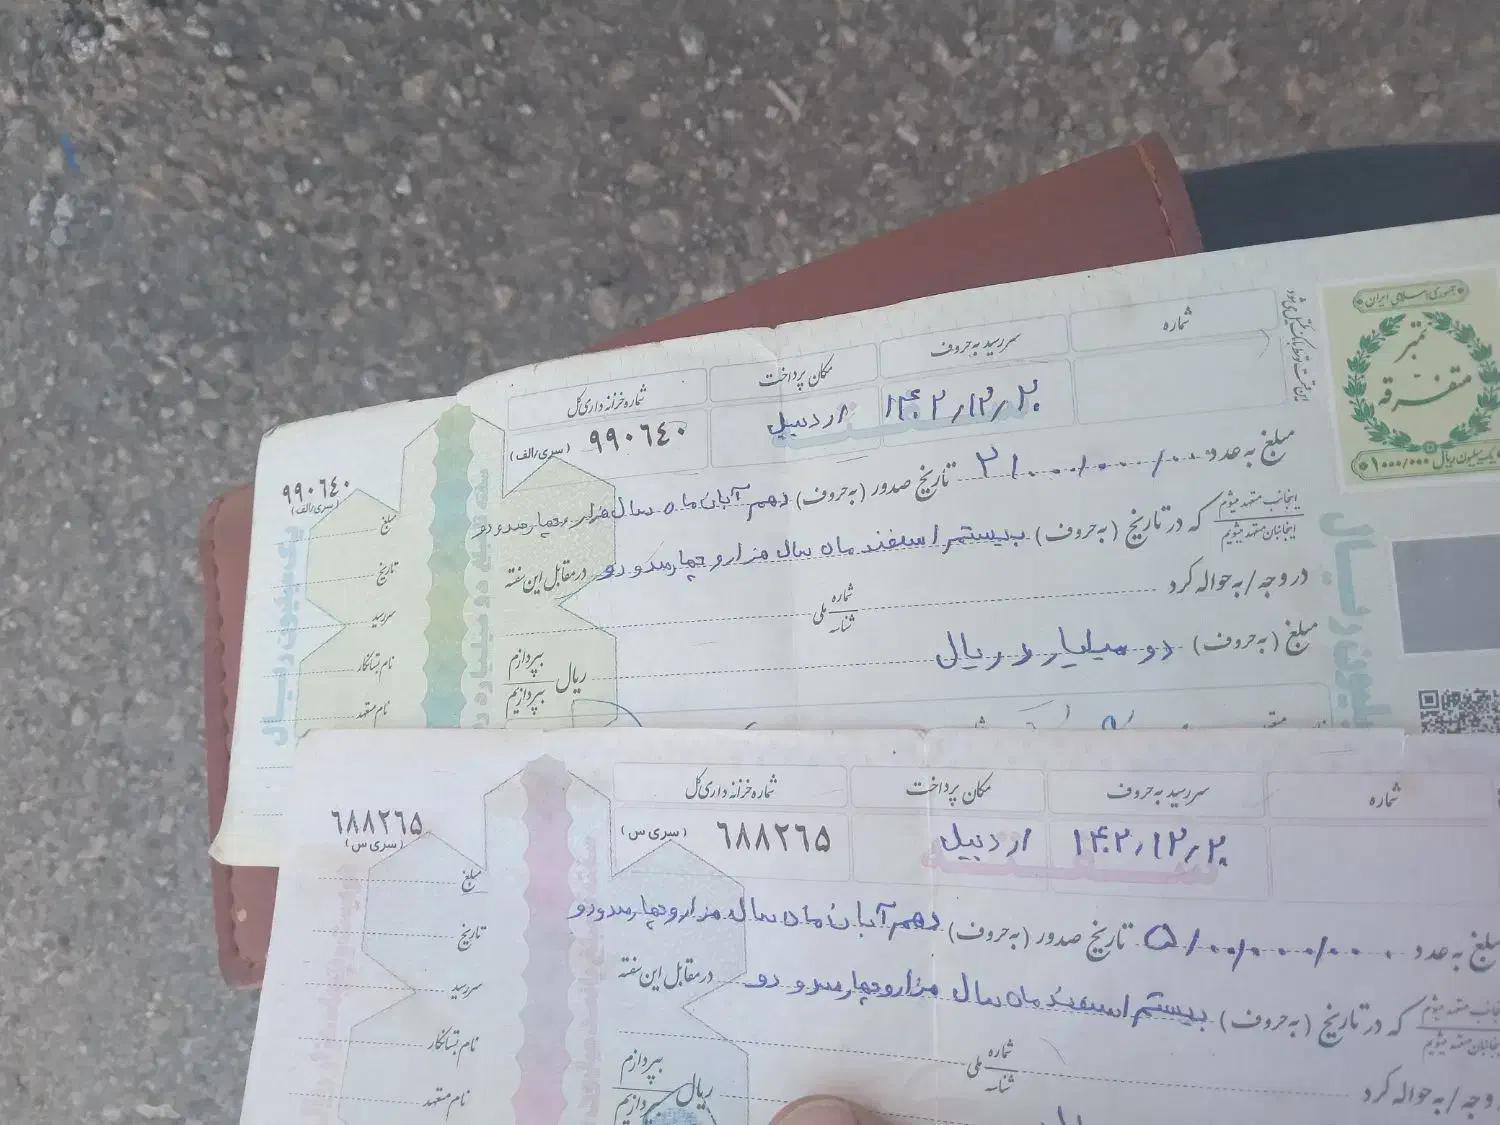 جمهوری اسلامی ایران
تمبر
متفرقه
یک میلیون ریال ۱/۰۰۰/۰۰۰
شماره
سررسید به حروف
مکان پرداخت
شماره خزانه داری کل
۱۴۰۲/۱۲/۲۰
اردبیل
۹۹۰٦٤۰ (سری/الف)
مبلغ به عدد ۲/۰۰۰/۰۰۰/۰۰۰ تاریخ صدور (به حروف) دهم آبان ماه سال هزار و چهارصد و دو
اینجانب متعهد میشوم
اینجانبان متعهد میشویم
که در تاریخ (به حروف) بیستم اسفند ماه سال هزار و چهارصد و دو در مقابل این سفته
در وجه / به حواله کرد
شماره
شناسه
ملی
مبلغ (به حروف) دو میلیارد ریال ریال
بپردازم
بپردازیم
۹۹۰٦٤۰
(سری/الف)
مبلغ
تاریخ
سررسید
نام بستانکار
نام متعهد
یک میلیون ریال
شماره
سررسید به حروف
مکان پرداخت
شماره خزانه داری کل
۱۴۰۲/۱۲/۲۰
اردبیل
٦۸۸۲٦٥ (سری س)
مبلغ به عدد ۵/۰۰/۰۰۰/۰۰۰ تاریخ صدور (به حروف) دهم آبان ماه سال هزار و چهارصد و دو
که در تاریخ (به حروف) بیستم اسفند ماه سال هزار و چهارصد و دو در مقابل این سفته
وجه / به حواله کرد
شماره
شناسه
ملی
ریال
بپردازم
بپردازیم
٦۸۸۲٦٥
(سری س)
مبلغ
تاریخ
سررسید
نام بستانکار
نام متعهد